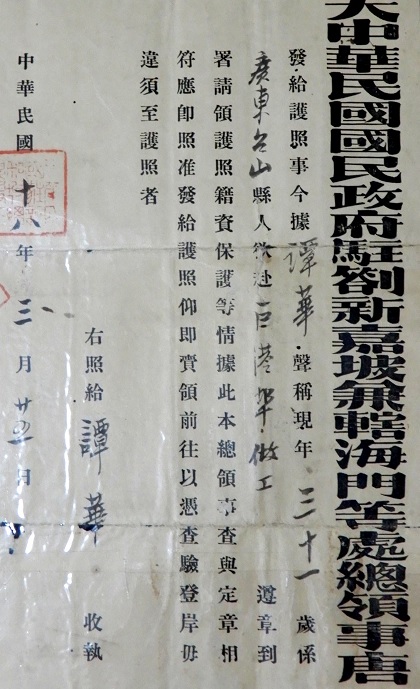 大中華民國國民政府駐劄新嘉坡兼轄海門等處總領事唐
發給護照事今據譚華聲稱現年三十一歲係
廣東台山縣人欲赴巨港埠做工遵章到
署請領護照藉資保護等情據此本總領事查與定章相
符應卽照准發給護照仰卽賷領前往以憑查驗登岸毋
違須至護照者
右照給譚華收執
中華民國十八年三月廿五日